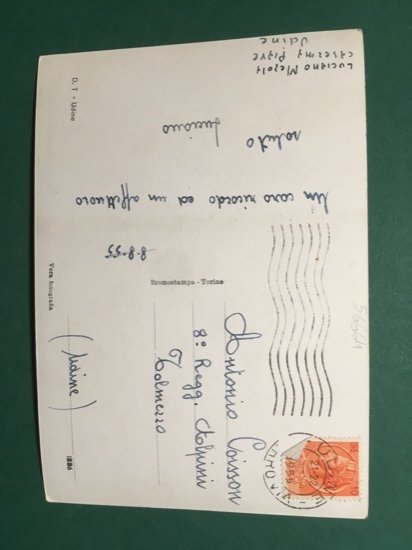 Luciano Merola
caserma Piave
Udine
D. T. - Udine
Un caro ricordo ed un affettuoso
saluto
Luciano
8-8-55
Bromostampa - Torino
Vera fotografia
Antonio Coisson
8º Regg. Alpini
Tolmezzo
(Udine)
1886
56644